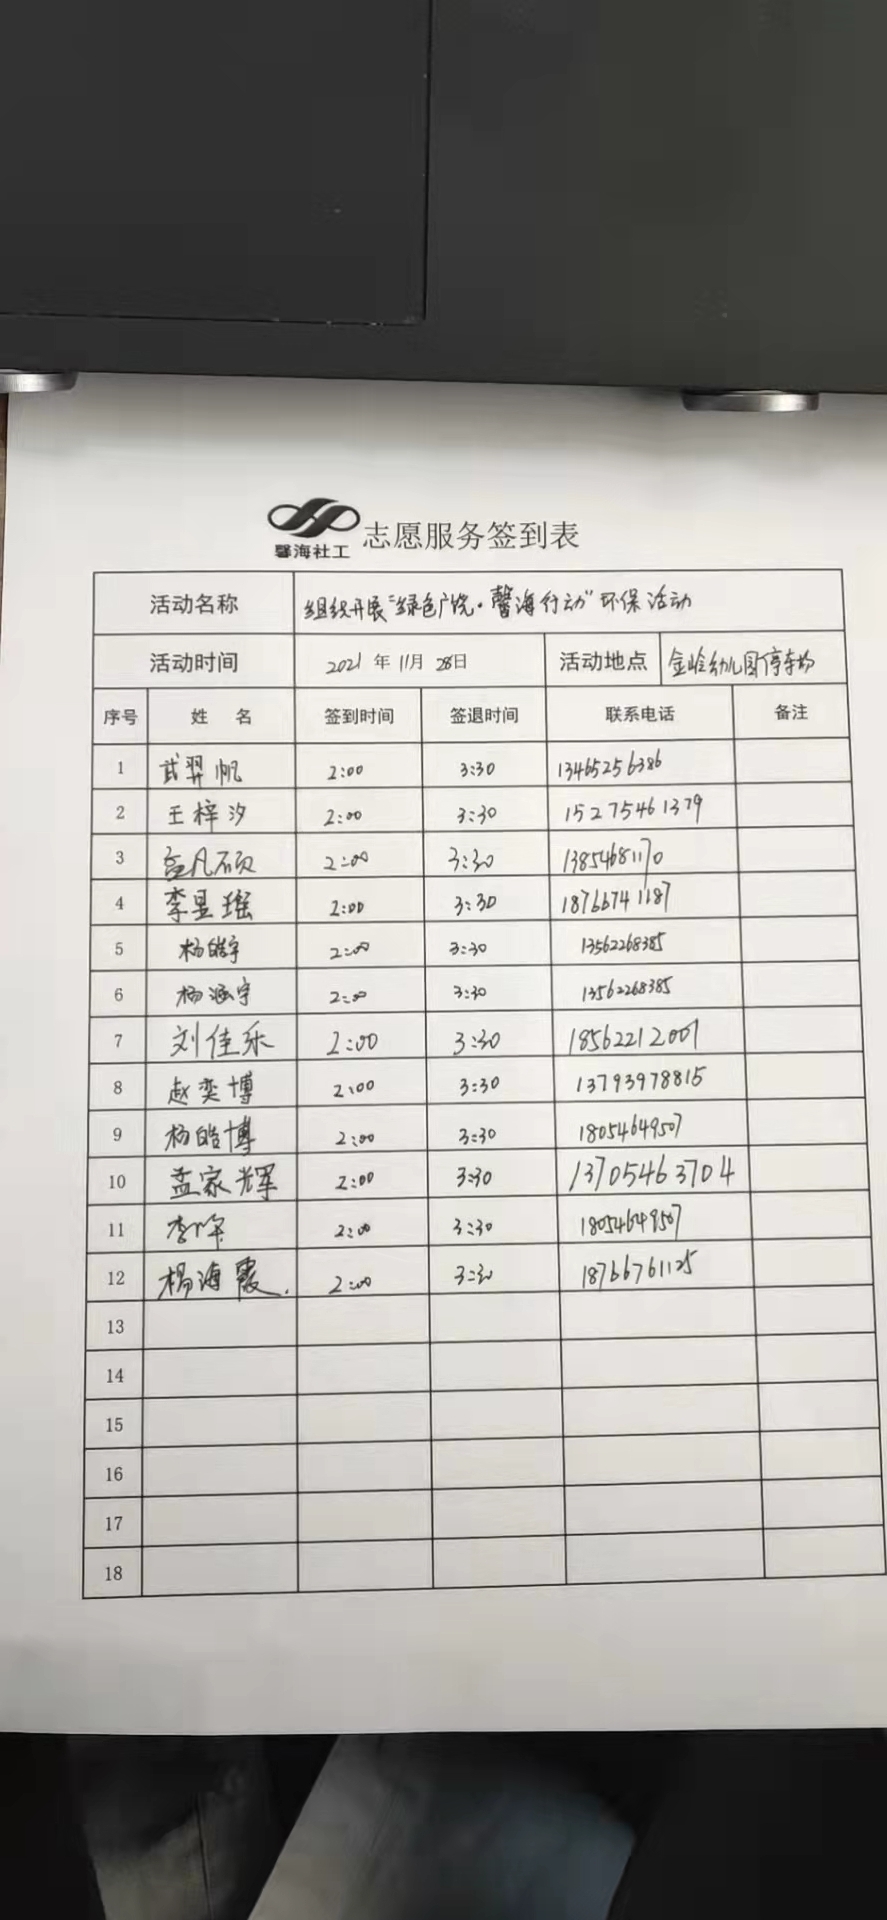 馨海社工 志愿服务签到表
活动名称 组织开展"绿色广饶·馨海行动"环保活动
活动时间 2021 年 11月 28日 活动地点 金岭幼儿园停车场
序号 姓 名 签到时间 签退时间 联系电话 备注
1 武羿帆 2:00 3:30 13465256386
2 王梓汐 2:00 3:30 15275461379
3 2:00 3:30 13854681170
4 李昱瑶 2:00 3:30 18766741187
5 杨皓宇 2:00 3:30 13562268385
6 杨涵宇 2:00 3:30 13562268385
7 刘佳乐 2:00 3:30 18562212001
8 赵奕博 2:00 3:30 13793978815
9 杨皓博 2:00 3:30 18054649507
10 孟家辉 2:00 3:30 13705463704
11 2:00 3:30 18054649507
12 杨海霞. 2:00 3:30 18766761125
13
14
15
16
17
18